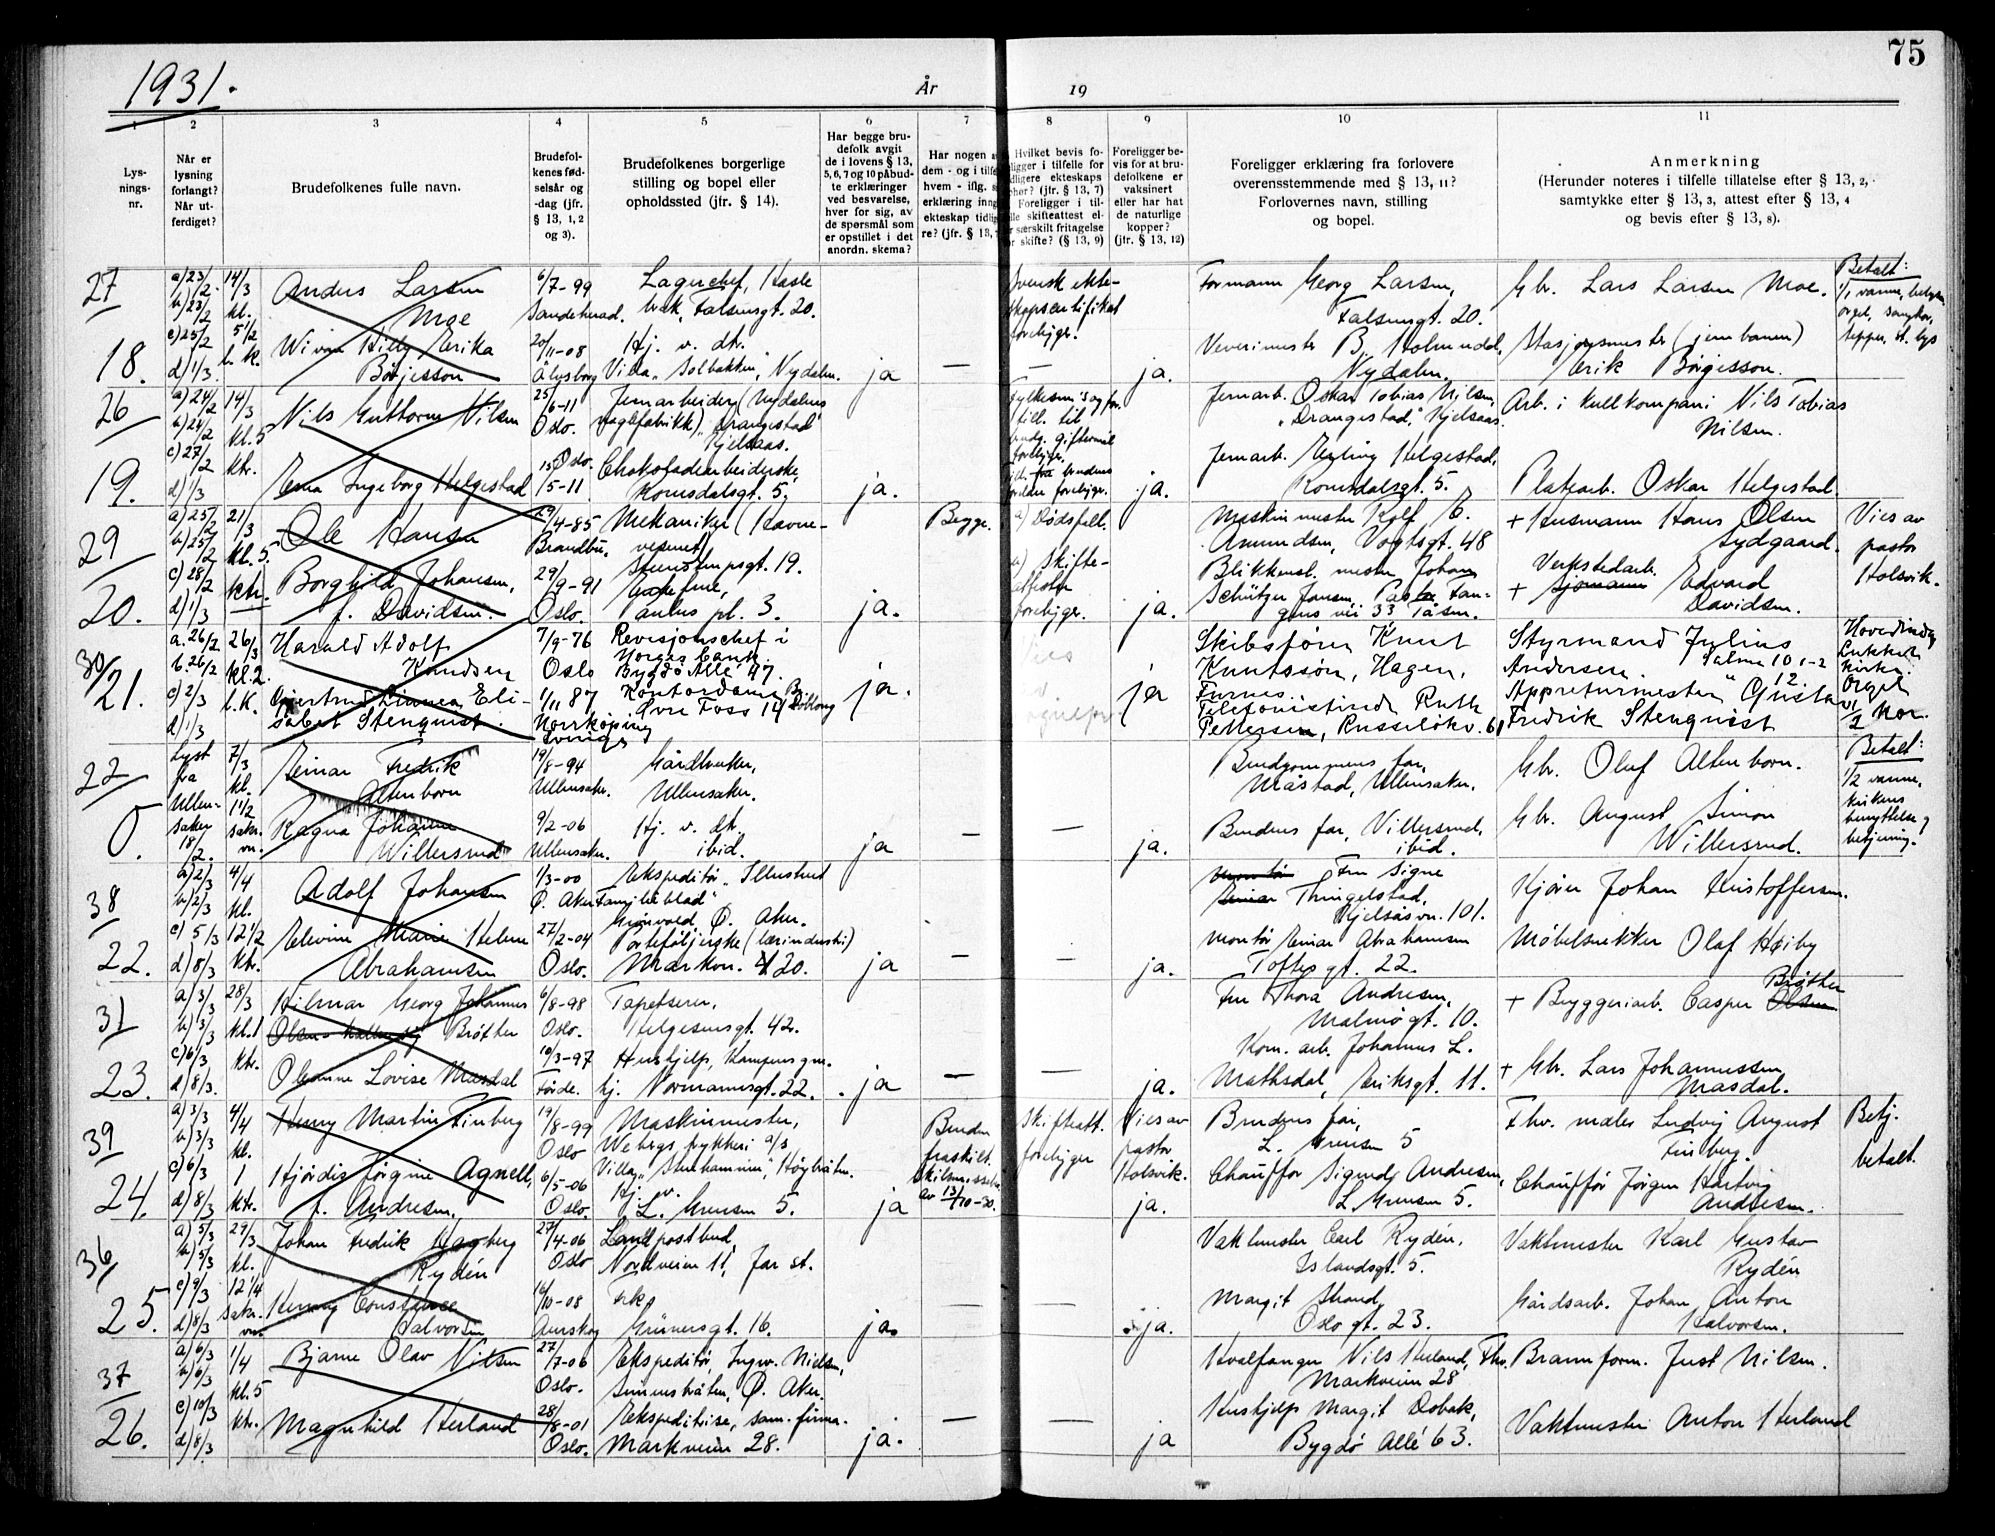 75
1931.
År
19
1
2
3
4
5
6
7
8
9
10
11
Lys-
nings-
nr.
Når er
lysning
forlangt?
Når ut-
ferdiget?
Brudefolkenes fulle navn.
Brudefol-
kenes fød-
selsår og
-dag (jfr.
§ 13, 1, 2
og 3).
Brudefolkenes borgerlige
stilling og bopel eller
opholdssted (jfr. § 14).
Har begge bru-
defolk avgit
de i lovens § 13,
5, 6, 7 og 10 påbud-
te erklæringer
ved besvarelse,
hver for sig, av
de spørsmål som
er opstillet i det
anordn. skema?
Har nogen
dem - og i tilfe
hvem - iflg.
erklæring inng
ekteskap tidlig
re? (jfr. § 13,
Hvilket bevis fo-
ligger i tilfelle for
dligere ekteskaps
hør? (jfr. § 13, 7)
Foreligger i til-
lle skifteattest el-
r særskilt fritagelse
or skifte? (§ 13, 9)
Foreligger be-
vis for at bru-
defolkene er
vaksinert
eller har hat
de naturlige
kopper?
(jfr. § 13, 12)
Foreligger erklæring fra forlovere
overensstemmende med § 13, 11?
Forlovernes navn, stilling
og bopel.
Anmerkning
(Herunder noteres i tilfelle tillatelse efter § 13, 2,
samtykke efter § 13, 3, attest efter § 13, 4
og bevis efter § 13, 8).
27
18.
a) 23/2
b) 23/2
c) 25/2
d) 1/3.
14/3
kl.
5 1/2
Anders Larsen
Moe
Börjesson
6/7-99
20/11-08
Lagerchef, Hasle
Falsensgt. 20.
Hj. v. dr.
Villa "Solbakken", Nydalen.
ja
—
Svensk ekte-
foreligger.
—
ja.
Formann Georg Larsen,
Falsensgt. 20.
Nydalen.
Gbr. Lars Larsen Moe.
Stasjonsmester (jernbanen)
Erik Börgesson.
Betalt:
26
19.
a) 24/2
b) 24/2
c) 27/2
d) 1/3
14/3
kl. 5
Nils Guttorm Nilsen
Erna Ingeborg Helgestad
25/6-11
Oslo.
Oslo.
15/5-11
Jernarbeider (Nydalens
Kjelsaas.
Chokoladearbeiderske,
Romsdalsgt. 5.
ja.
foreligger.
ja.
Jernarb. Oskar Tobias Nilsen,
"Drangestad", Kjelsaas.
Jernarb. Erling Helgestad,
Romsdalsgt. 5.
Arb. i kullkompani Nils Tobias
Nilsen.
Platearb. Oskar Helgestad.
29
20.
a) 25/2
b) 25/2
c) 28/2
d) 1/3
21/3
kl. 5.
Ole Hansen
Borghild Johansen,
f. Davidsen.
29/4-85
Brandbu.
29/9-91
Oslo.
Mekaniker (Havne-
vesenet)
Paulus pl. 3.
ja.
Begge.
a) Dødsfall.
b) Skifte-
foreligger.
ja.
Maskinmester Rolf B.
Amundsen, Vogtsgt. 48
Blikkensl. mester Johan
+ Husmann Hans Olsen
Sydgaard.
Verkstedarb.
+ Sjømann Edvard
Davidsen.
Vies av
pastor
Holsvik.
30/
21.
a. 26/2
b. 26/2
c) 2/3
d) 1/3
26/3
kl 2.
Harald Adolf
Knudsen
Gjertrud Linnea Eli-
sabet Stenquist
7/9-76
Oslo
1/11 87
Norrköping
Sverige
Revisjonschef i
Norges Bank.
Bygdø Allé 47.
Kontordame
Øvre Foss 14
ja.
ja
Skibsfører Knut
Kuntssøn, Hagen,
Furnes.
Telefonistinde Ruth
Pettersen, Russeløkv. 61
Styrmand Julius
Andersen.
Appreturmester Gusta
Fredrik Stenquist
22
0.
Lyst
fra
Ullen-
saker
18/2.
7/3
kl.
1 1/2
Einar Fredrik
Altenborn
Ragna Johanne
Willersrud
19/8-94
Ullensaker.
9/2-06
Ullensaker.
Gårdbruker,
Ullensaker.
Hj. v. dr.
ibid.
ja
—
—
ja.
Brudgommens far,
Måstad, Ullensaker.
Brudens far, Villersrud,
ibid.
Gbr. Olaf Altenborn.
Gbr. August Simon
Willersrud.
Betalt:
38
22.
a) 2/3
b) 2/3
c) 5/3
d) 8/3
4/4
kl.
12 1/2
Adolf Johansen
Elevine Marie Helene
Abrahamsen
1/3-00
Ø. Aker
27/2-04
Oslo.
Ekspeditør "Illustrert
Familieblad"
Grønvold, Ø. Aker.
Markvn. 20.
ja
—
—
ja.
Fru Signe
Thingelstad,
Kjelsåsvn. 101.
Montør Einar Abrahamsen
Toftes gt. 22.
Kjører Johan Kristoffersen.
Møbelsnekker Olaf Høiby
31
23.
a) 3/3
b) 3/3
c) 6/3
d) 8/3.
28/3
kl. 1
Hilmar Georg Johannes
Brøther
Oleanne Lovise Masdal
6/8-98
Oslo.
10/3-97
Førde.
Tapetserer,
Helgesensgt. 42.
Hushjelp, Kampens gm.
hj. Normannsgt. 22.
ja
—
—
ja.
Fru Thora Andresen,
Malmøgt. 10.
Kom. arb. Johannes L.
Mathsdal, Eriksgt. 11.
Brøther
+ Bryggeriarb. Casper Olsen
+ Gbr. Lars Johannessen
Masdal.
39
24.
a) 3/3
b) 3/3
c) 6/3
d) 8/3
4/4
kl.
1
Henry Martin Finberg
Hjördis Jörgine Agnell,
f. Andresen.
19/8-99
Oslo
6/5-06
Oslo.
Maskinmester,
L. Grensen 5.
ja
Bruden
fraskilt.
av 13/10-30.
Skifteatt.
foreligger
Vies av
pastor
Holsvik.
ja.
Brudens far,
L. Grensen 5
Chauffør Sigurd Andresen,
L. Grensen 5.
Fhv. maler Ludvig August
Finberg.
Chauffør Jørgen Hartvig
Andresen.
Betj.
betalt.
36
25.
a) 5/3
b) 5/3
c) 9/3
d) 8/3
29/3
kl.
12 1/4
Johan Fredrik Hagberg
Rydén
Henny Constance
Halvorsen
27/4-06
Oslo
16/10-08
Aurskog
Landpostbud,
Nordveien 11, Jar st.
Grünersgt. 16.
ja.
—
—
ja.
Vaktmester Carl Rydén,
Islandsgt. 5.
Margit Strand,
Oslogt. 23.
Vaktmester Karl Gustav
Rydén
Gårdsarb. Johan Anton
Halvorsen.
37
26.
a) 6/3
b) 6/3
c) 10/3
d) 8/3
1/4
kl. 5
Bjarne Olav Nilsen
Magnhild Herland
27/7-06
Oslo.
28/8-01
Oslo.
Ekspeditør, Ingw. Nielsen,
Ø. Aker.
Ekspeditrise, sam. firma.
Markveien 28.
ja.
—
—
ja
Hvalfanger Nils Herland,
Markveien 28
Hushjelp Margit Dobak,
Bygdø Allé 63.
Fhv. Brannform. Just Nilsen.
Vaktmester Anton Herland